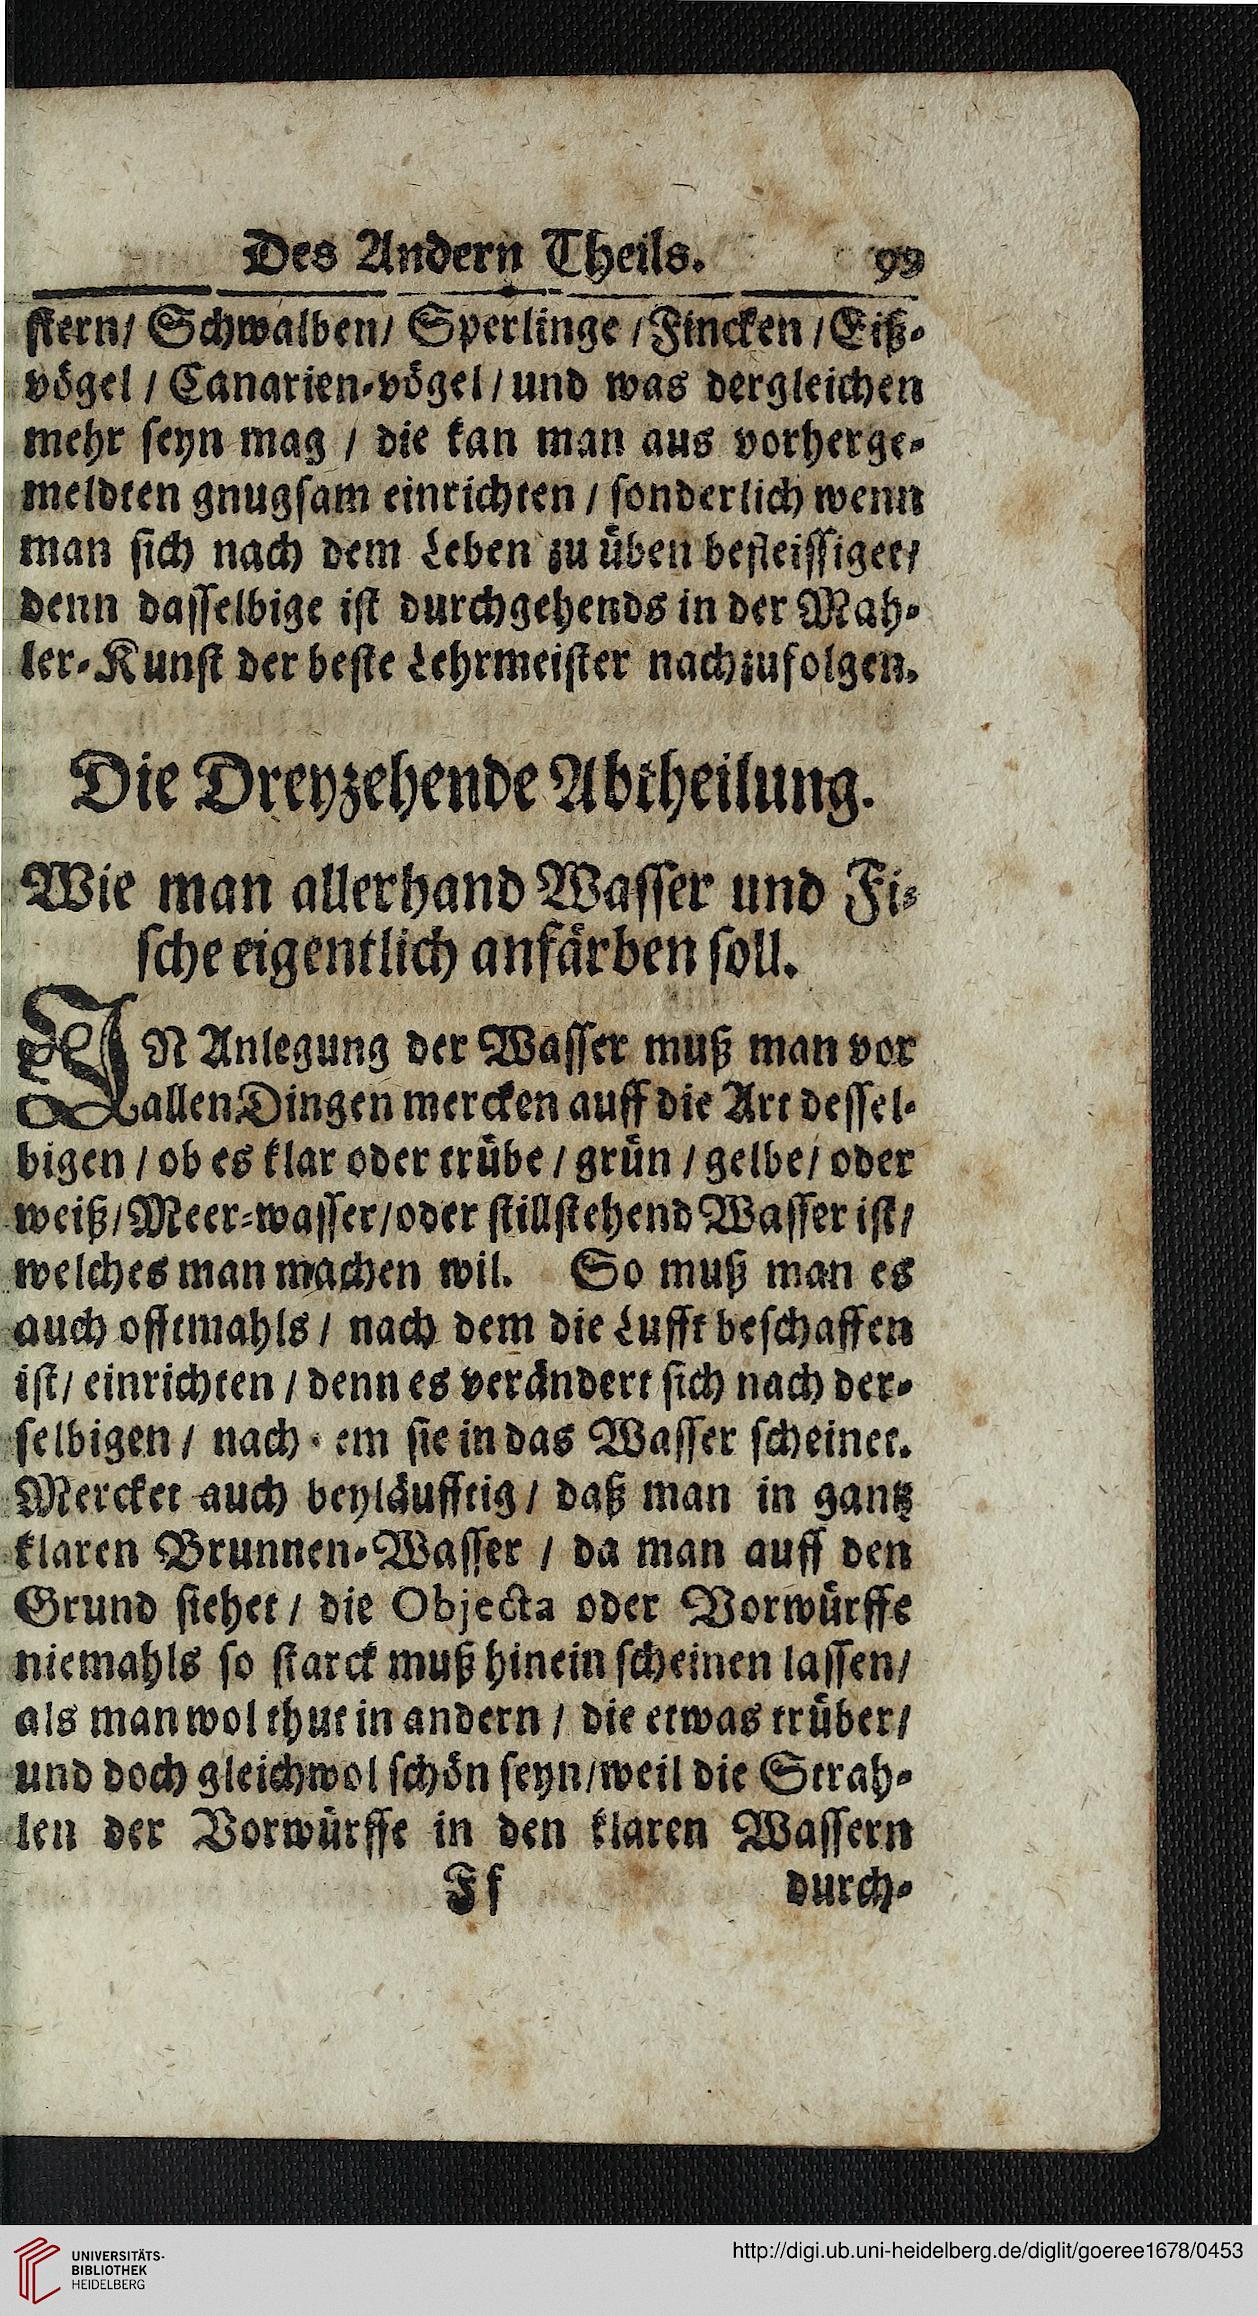 Des Andern Theils. 99
stern/ Schwalben/ Sperlinge / Fincken / Eiß-
vögel / Canarien-vögel / und was dergleichen
mehr seyn mag / die kan man aus vorherge-
meldten gnugsam einrichten / sonderlich wenn
man sich nach dem Leben zu üben befleissiget/
denn dasselbige ist durchgehends in der Mah-
ler-Kunst der beste Lehrmeister nachzufolgen.
Die Dreyzehende Abtheilung.
Wie man allerhand Wasser und Fi-
sche eigentlich anfärben soll.
IN Anlegung der Wasser muß man vor
allen Dingen mercken auff die Art dessel-
bigen / ob es klar oder trübe / grün / gelbe / oder
weiß / Meer-wasser / oder stillstehend Wasser ist/
welches man machen wil. So muß man es
auch offtmahls / nach dem die Lufft beschaffen
ist/ einrichten / denn es verändert sich nach der-
selbigen / nach em sie in das Wasser scheinet.
Mercket auch beyläufftig / daß man in gantz
klaren Brunnen-Wasser / da man auff den
Grund siehet / die Objecta oder Vorwürffe
niemahls so starck muß hinein scheinen lassen/
als man wol thut in andern / die etwas trüber/
und doch gleichwol schön seyn / weil die Strah-
len der Vorwürffe in den klaren Wassern
Ff durch-
UNIVERSITÄTS-
BIBLIOTHEK
HEIDELBERG
http://digi.ub.uni-heidelberg.de/diglit/goeree1678/0453